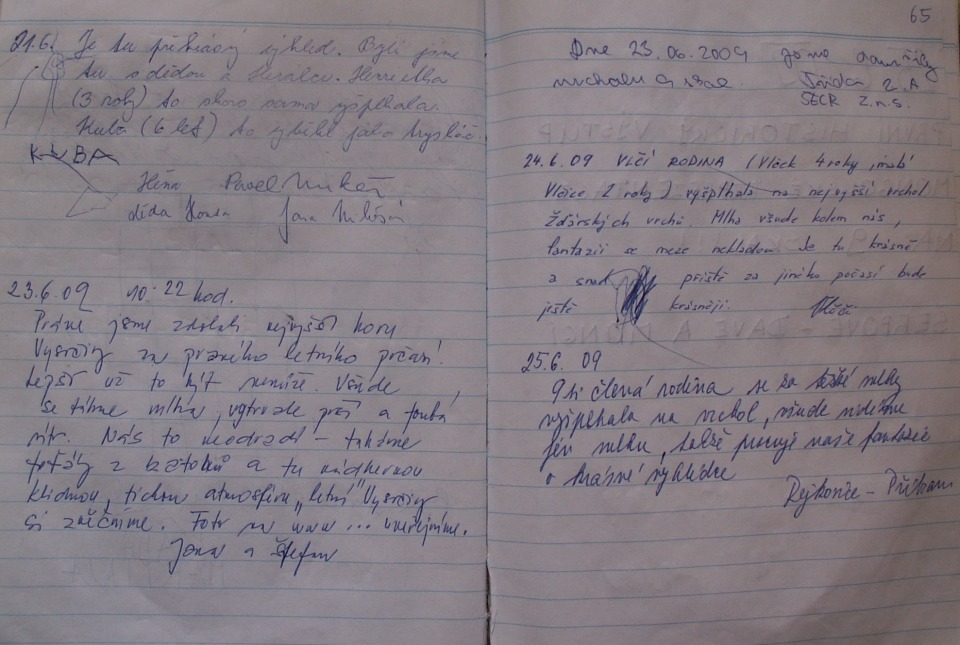 21.6. Je tu překrásný výhled. Byli jsme
tu s dědou a
(3 roky) to skoro sama vyšplhala.
Kuba (6 let) to vyběhl jako
KUBA
Pavel
děda Honza Jana
23.6.09 10:22 hod.
Právě jsme zdolali nejvyšší horu
Vysočiny za pravého letního počasí.
Lepší už to být nemůže. Všude
se táhne mlha, vytrvale prší a fouká
vítr. Nás to neodradí – taháme
foťáky z batohů a tu nádhernou
klidnou, tichou atmosféru „letní" Vysočiny
si zvěčníme. Foto na www ... uveřejníme.
Jana a Štefan
65
Dne 23.06.2009 jsme
Třída 2.A
SECR Z.n.S.
24.6.09 VLČÍ RODINA (Vlček 4 roky, malá
Vlčice 2 roky) vyšplhala na nejvyšší vrchol
Žďárských vrchů. Mlha všude kolem nás,
fantazii se meze nekladou. Je tu krásně
a snad příště za jiného počasí bude
ještě krásněji. Vlčči
25.6.09
9ti členná rodina se za těžké mlhy
vyšplhala na vrchol, všude vidíme
jen mlhu, takže pracuje naše fantazie
o krásné vyhlídce
– Příbram